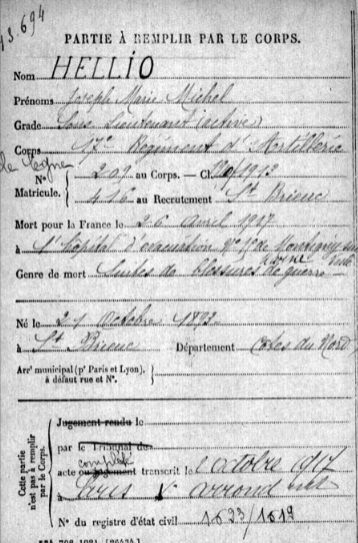 13694
PARTIE À REMPLIR PAR LE CORPS.
Nom HELLIO
Prénoms Joseph Marie Michel
Grade Sous Lieutenant (active)
Corps 17e Régiment d'Artillerie
N° 209 au Corps. — Cl. 1912
Matricule. 416 au Recrutement St Brieuc
Mort pour la France le 26 avril 1917
à l'hôpital d'évacuation de Montigny sur
Vesle Marne
Genre de mort Suites de blessures de guerre
Né le 21 Octobre 1892
à St Brieuc Département Côtes du Nord
Arrt municipal (pr Paris et Lyon),
à défaut rue et N°.
Cette partie
n'est pas à remplir
par le Corps.
Jugement rendu le
par le Tribunal de
acte ou jugement transcrit le octobre 1917
à Paris V arrondmt
N° du registre d'état civil 1693/1619